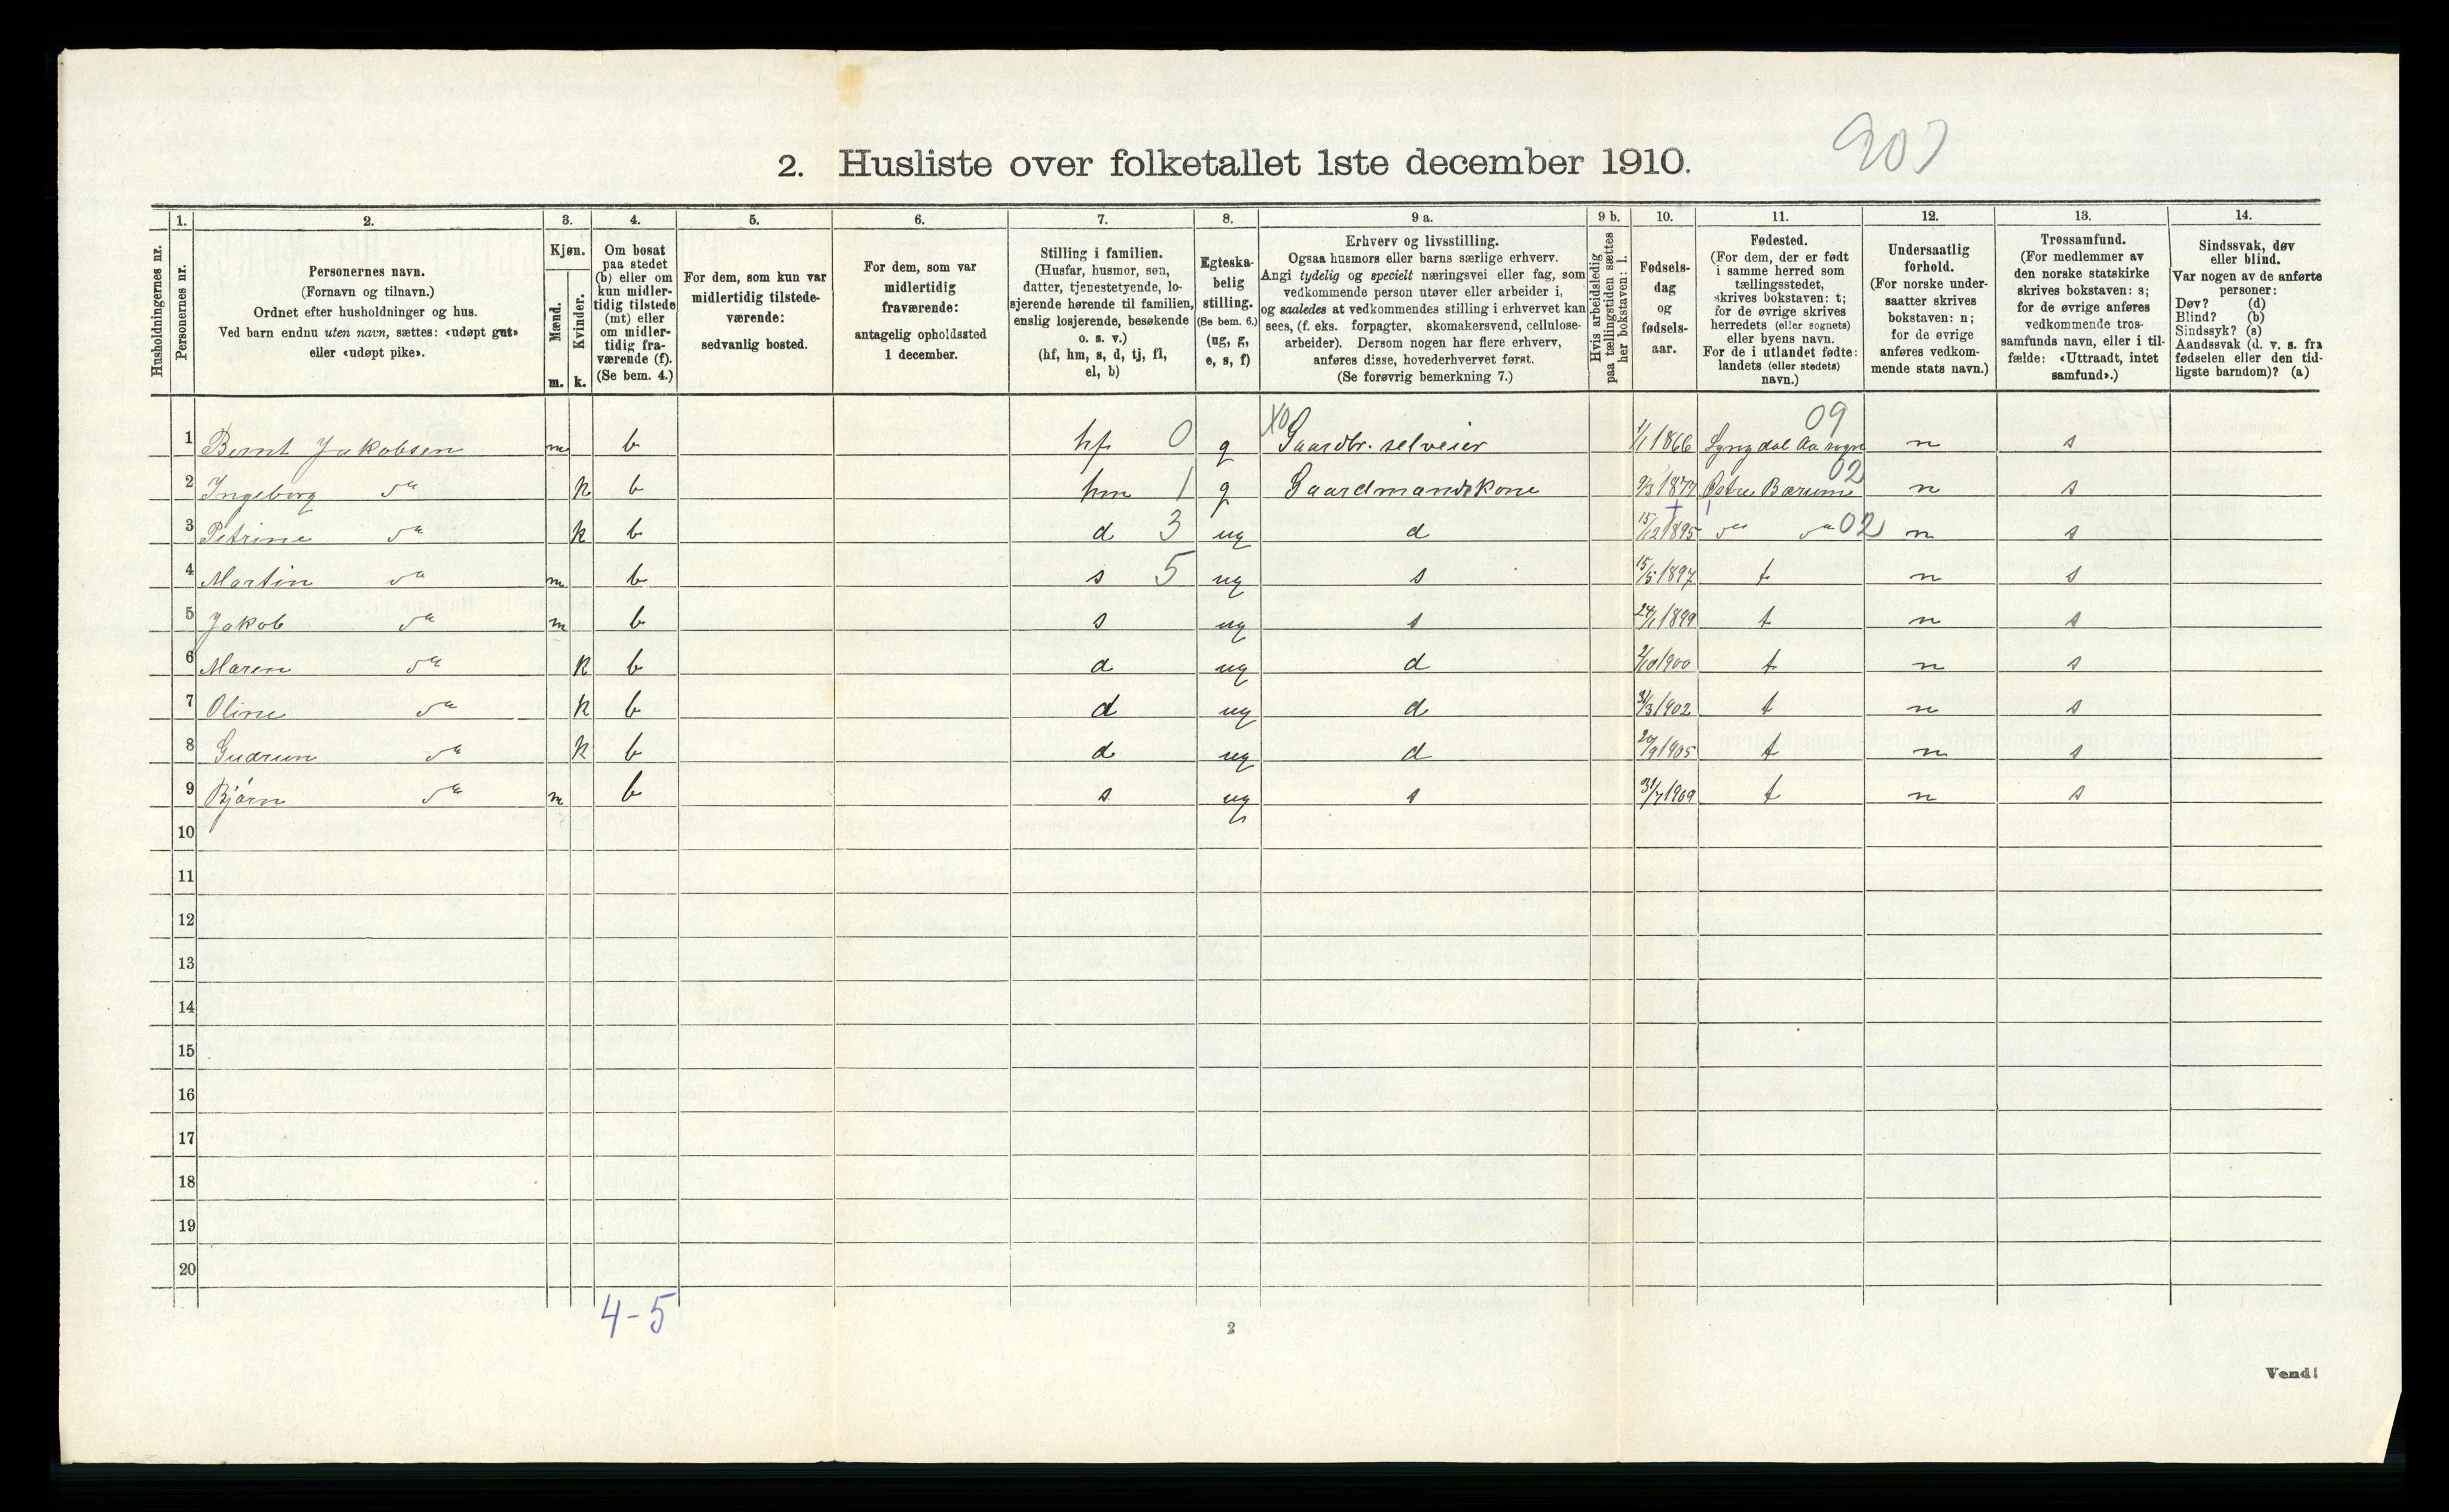 907
2. Husliste over folketallet 1ste december 1910.
Husholdningernes nr.
1.
Personernes nr.
2.
Personernes navn.
(Fornavn og tilnavn.)
Ordnet efter husholdninger og hus.
Ved barn endnu uten navn, sættes: «udøpt gut»
eller «udøpt pike».
3.
Kjøn.
Mænd.
m.
Kvinder.
k.
4.
Om bosat
paa stedet
(b) eller om
kun midler-
tidig tilstede
(mt) eller
om midler-
tidig fra-
værende (f).
(Se bem. 4.)
5.
For dem, som kun var
midlertidig tilstede-
værende:
sedvanlig bosted.
6.
For dem, som var
midlertidig
fraværende:
antagelig opholdssted
1 december.
7.
Stilling i familien.
(Husfar, husmor, søn,
datter, tjenestetyende, lo-
sjerende hørende til familien,
enslig losjerende, besøkende
o. s. v.)
(hf, hm, s, d, tj, fl,
el, b)
8.
Egteska-
belig
stilling.
(Se bem. 6.)
(ug, g,
e, s, f)
9 a.
Erhverv og livsstilling.
Ogsaa husmors eller barns særlige erhverv.
Angi tydelig og specielt næringsvei eller fag, som
vedkommende person utøver eller arbeider i,
og saaledes at vedkommendes stilling i erhvervet kan
sees, (f. eks. forpagter, skomakersvend, cellulose-
arbeider). Dersom nogen har flere erhverv,
anføres disse, hovederhvervet først.
(Se forøvrig bemerkning 7.)
9 b.
Hvis arbeidsledig
paa tællingstiden sættes
her bokstaven: l.
10.
Fødsels-
dag
og
fødsels-
aar.
11.
Fødested.
(For dem, der er født
i samme herred som
tællingsstedet,
skrives bokstaven: t;
for de øvrige skrives
herredets (eller sognets)
eller byens navn.
For de i utlandet fødte:
landets (eller stedets)
navn.)
12.
Undersaatlig
forhold.
(For norske under-
saatter skrives
bokstaven: n;
for de øvrige
anføres vedkom-
mende stats navn.)
13.
Trossamfund.
(For medlemmer av
den norske statskirke
skrives bokstaven: s;
for de øvrige anføres
vedkommende tros-
samfunds navn, eller i til-
fælde: «Uttraadt, intet
samfund».)
14.
Sindssvak, døv
eller blind.
Var nogen av de anførte
personer:
Døv? (d)
Blind? (b)
Sindssyk? (s)
Aandssvak (d. v. s. fra
fødselen eller den tid-
ligste barndom)? (a)
X0 09
1 Bernt Jakobsen m b hf 0 g Gaardbr. selveier 1/1 1866 Lyngdal Aa sogn n s
02
2 Ingeborg da k b hm 1 g Gaardmandskone 9/3 1877 Østre Bærum n s
3 Petrine da k b d 3 ug d 15/12 1895 da da 02 n s
4 Martin da m b s 5 ug s 15/5 1897 t n s
5 Jakob da m b s ug s 24/1 1899 t n s
6 Maren da k b d ug d 2/10 1900 t n s
7 Oline da k b d ug d 31/3 1902 t n s
8 Gudrun da k b d ug d 29/9 1905 t n s
9 Bjørn da m b s ug s 31/7 1909 t n s
10
11
12
13
14
15
16
17
18
19
20
4-5
2
Vend!